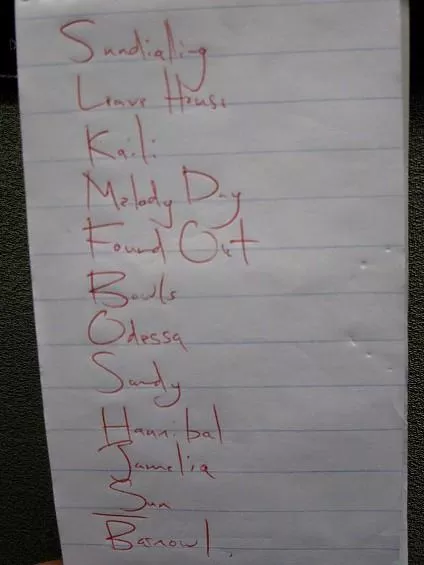 Sundialling
Leave House
Kaili
Melody Day
Found Out
Bowls
Odessa
Sandy
Hannibal
Jamelia
Sun
Barnowl